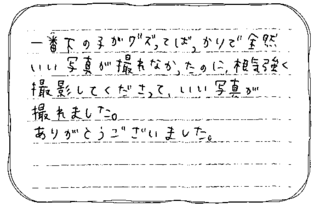 一番下の子がグズってばっかりで全然
いい写真が撮れなかったのに、根気強く
撮影してくださって、いい写真が
撮れました。
ありがとうございました。